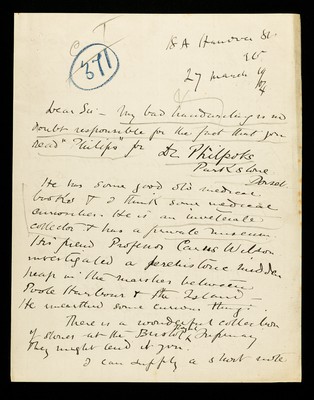 371
18A Hanover Sq
27 March 19
14
Dear Sir - My bad handwriting is no
doubt responsible for the fact that you
read "Philips" for Dr Philpots
Parkstone
Dorset.
He has some good old medical
books & I think some medical
curiosities. He is an inveterate
collector & has a private museum
His friend Professor Carus Wilson
investigated a prehistoric midden
heap in the marshes between
Poole Harbour & the Island -
He unearthed some curious things.
There is a wonderful collection
of stones at the Bristol Infirmary
They might lend it you.
I can supply a short note